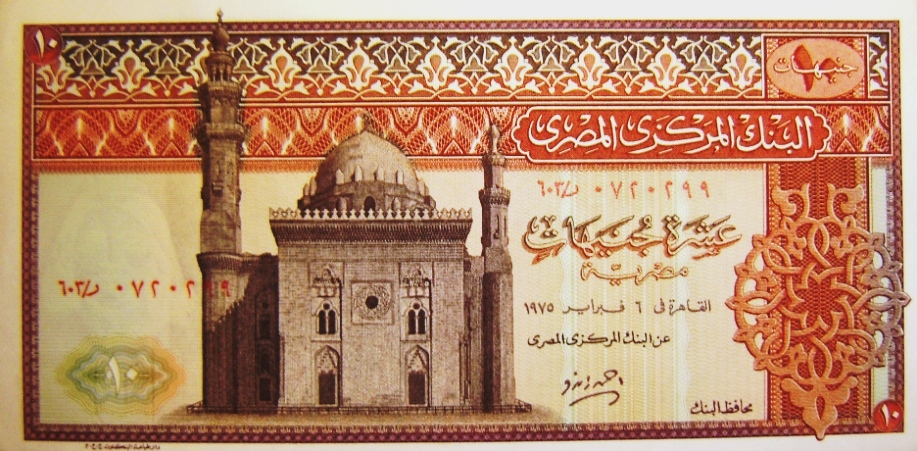 ١٠
جنيهات
البنك المركزى المصرى
٦٠٣/د ٠٧٢٠٢٩٩
عشرة جنيهات
مصرية
القاهرة فى ٦ فبراير ١٩٧٥
عن البنك المركزى المصرى
محافظ البنك
٦٠٣/د ٠٧٢٠٢٩٩
١٠
١٠